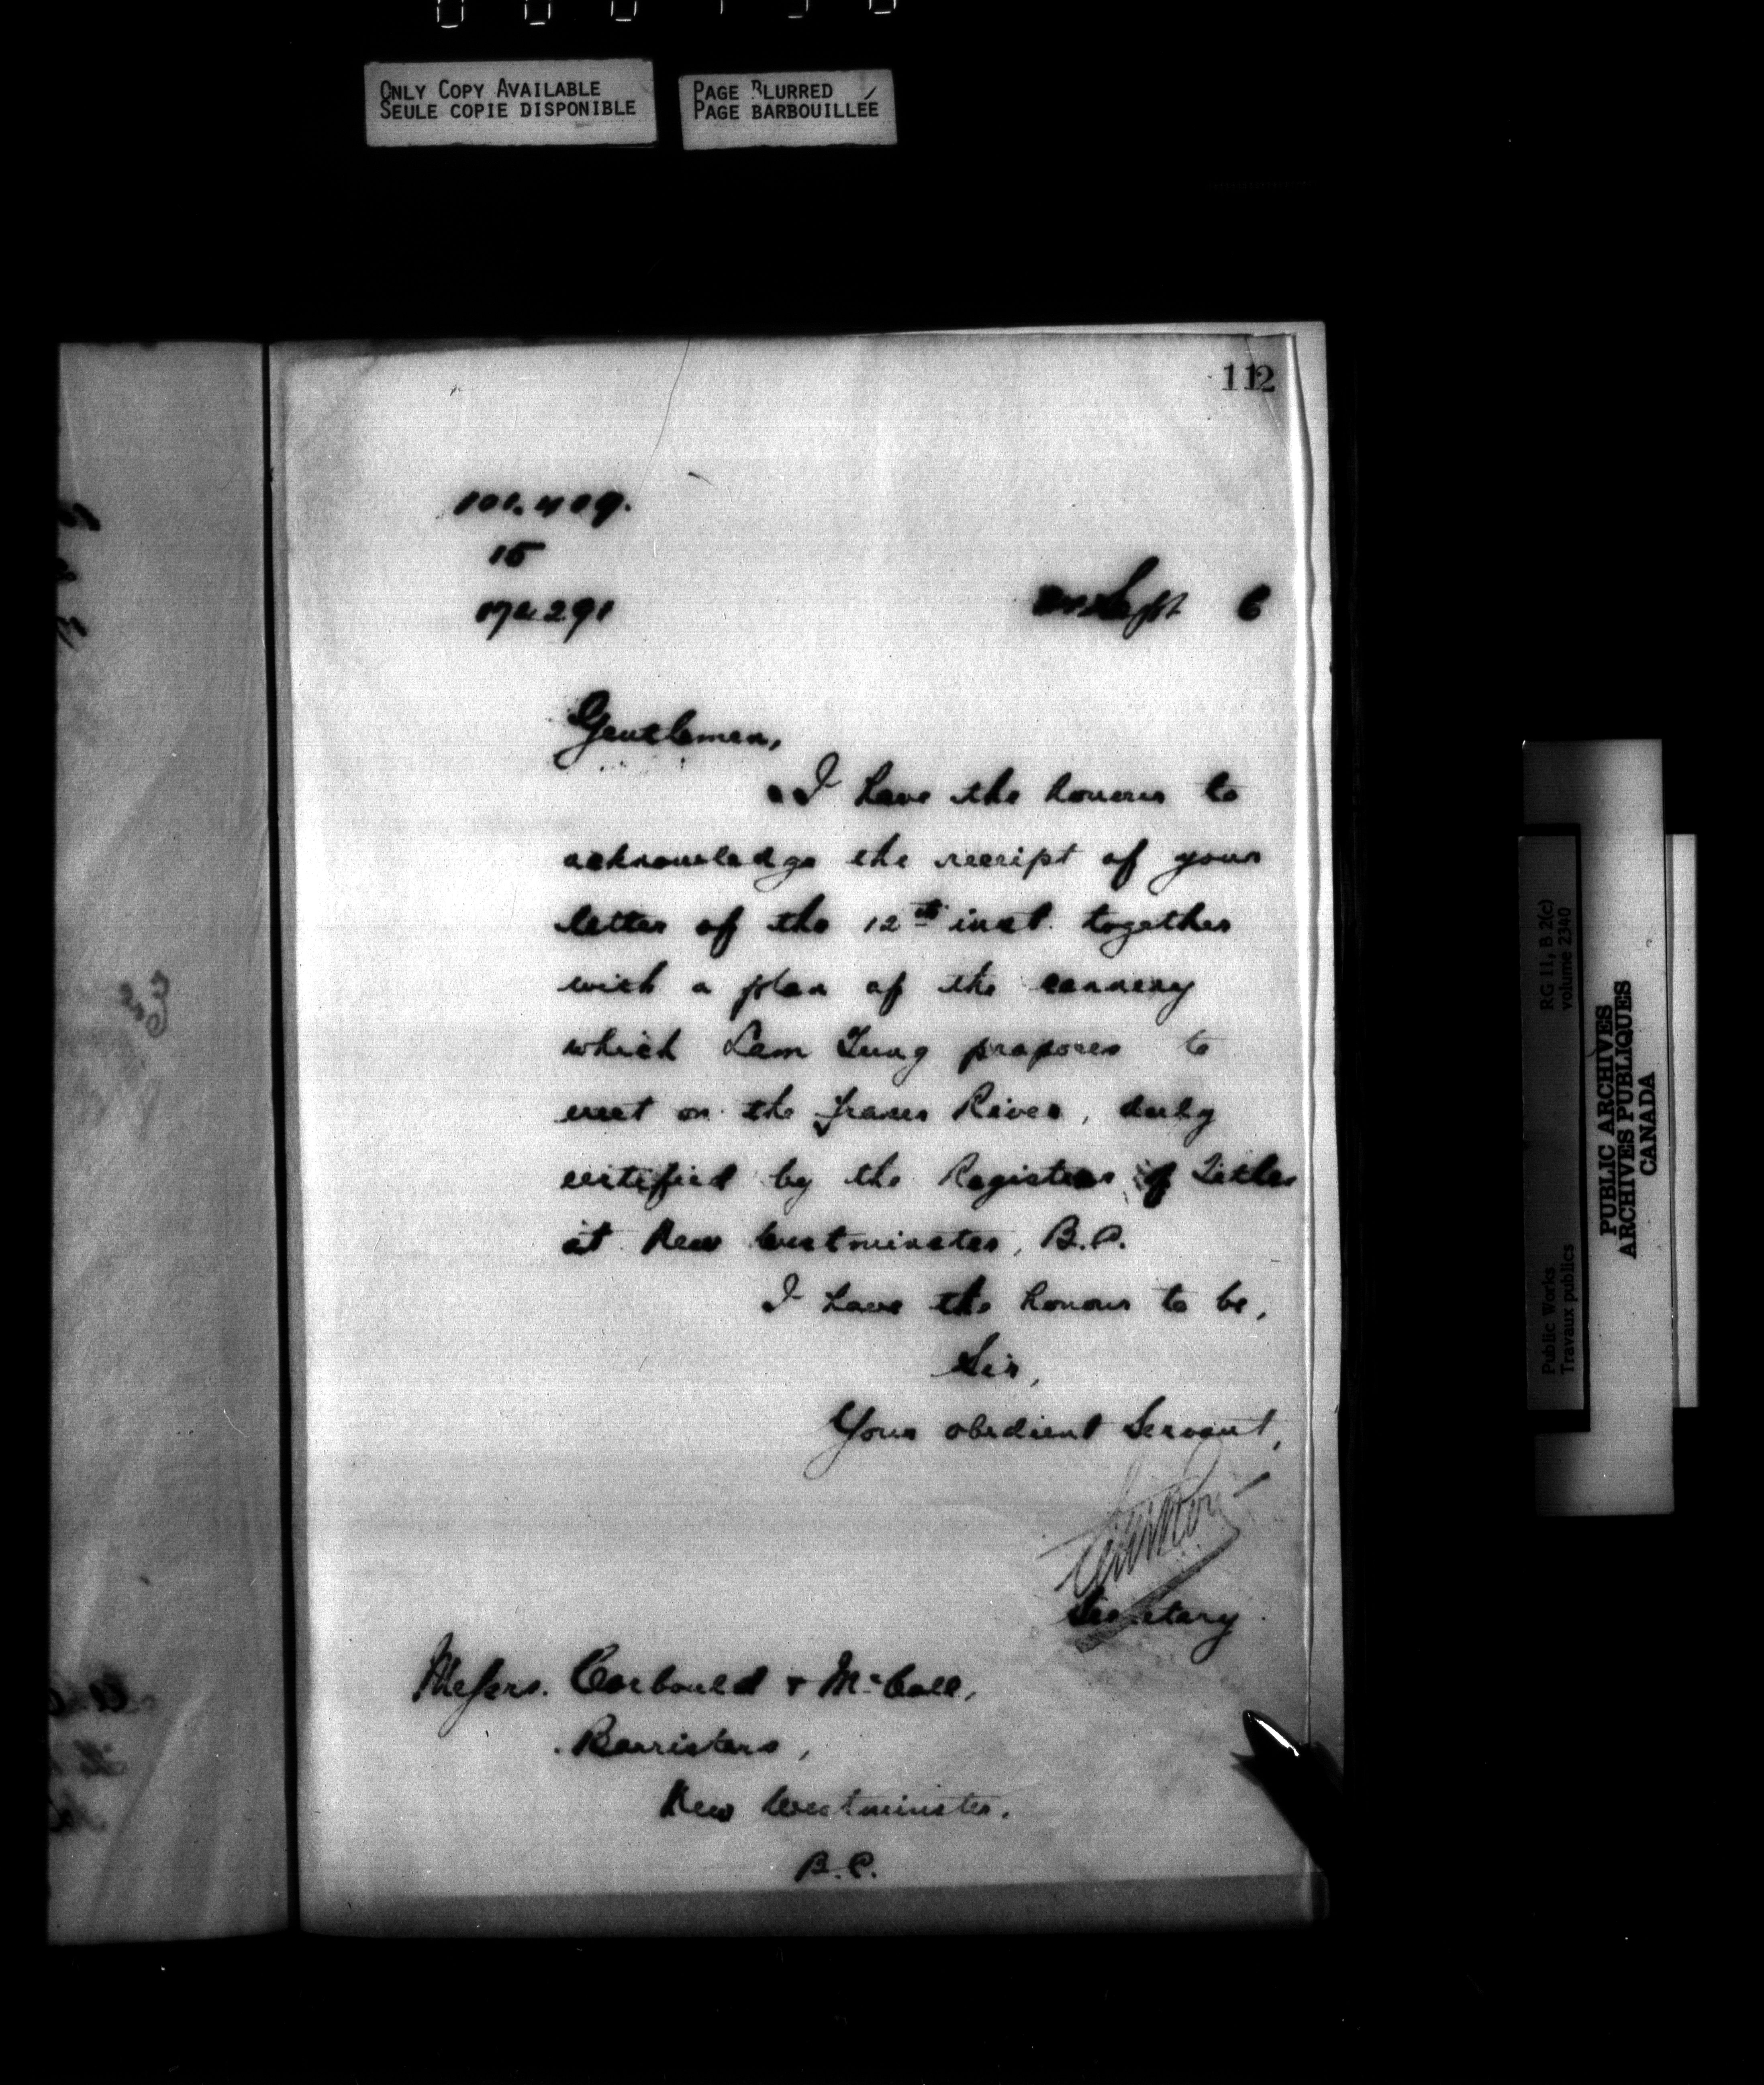 ONLY COPY AVAILABLE
SEULE COPIE DISPONIBLE
PAGE BLURRED
PAGE BARBOUILLÉE
112
15
Sept 6
Gentlemen,
I have the honour to
acknowledge the receipt of your
letter of the 12th inst. together
with a plan of the cannery
which Lam Tung proposes to
erect on the Fraser River, duly
certified by the Registrar of Titles
at New Westminster, B.C.
I have the honour to be,
Sir,
Your obedient Servant,
Secretary
Messrs. Corbould & McColl,
Barristers,
New Westminster.
B.C.
Public Works
Travaux publics
RG 11, B 2(c)
volume 2340
PUBLIC ARCHIVES
ARCHIVES PUBLIQUES
CANADA